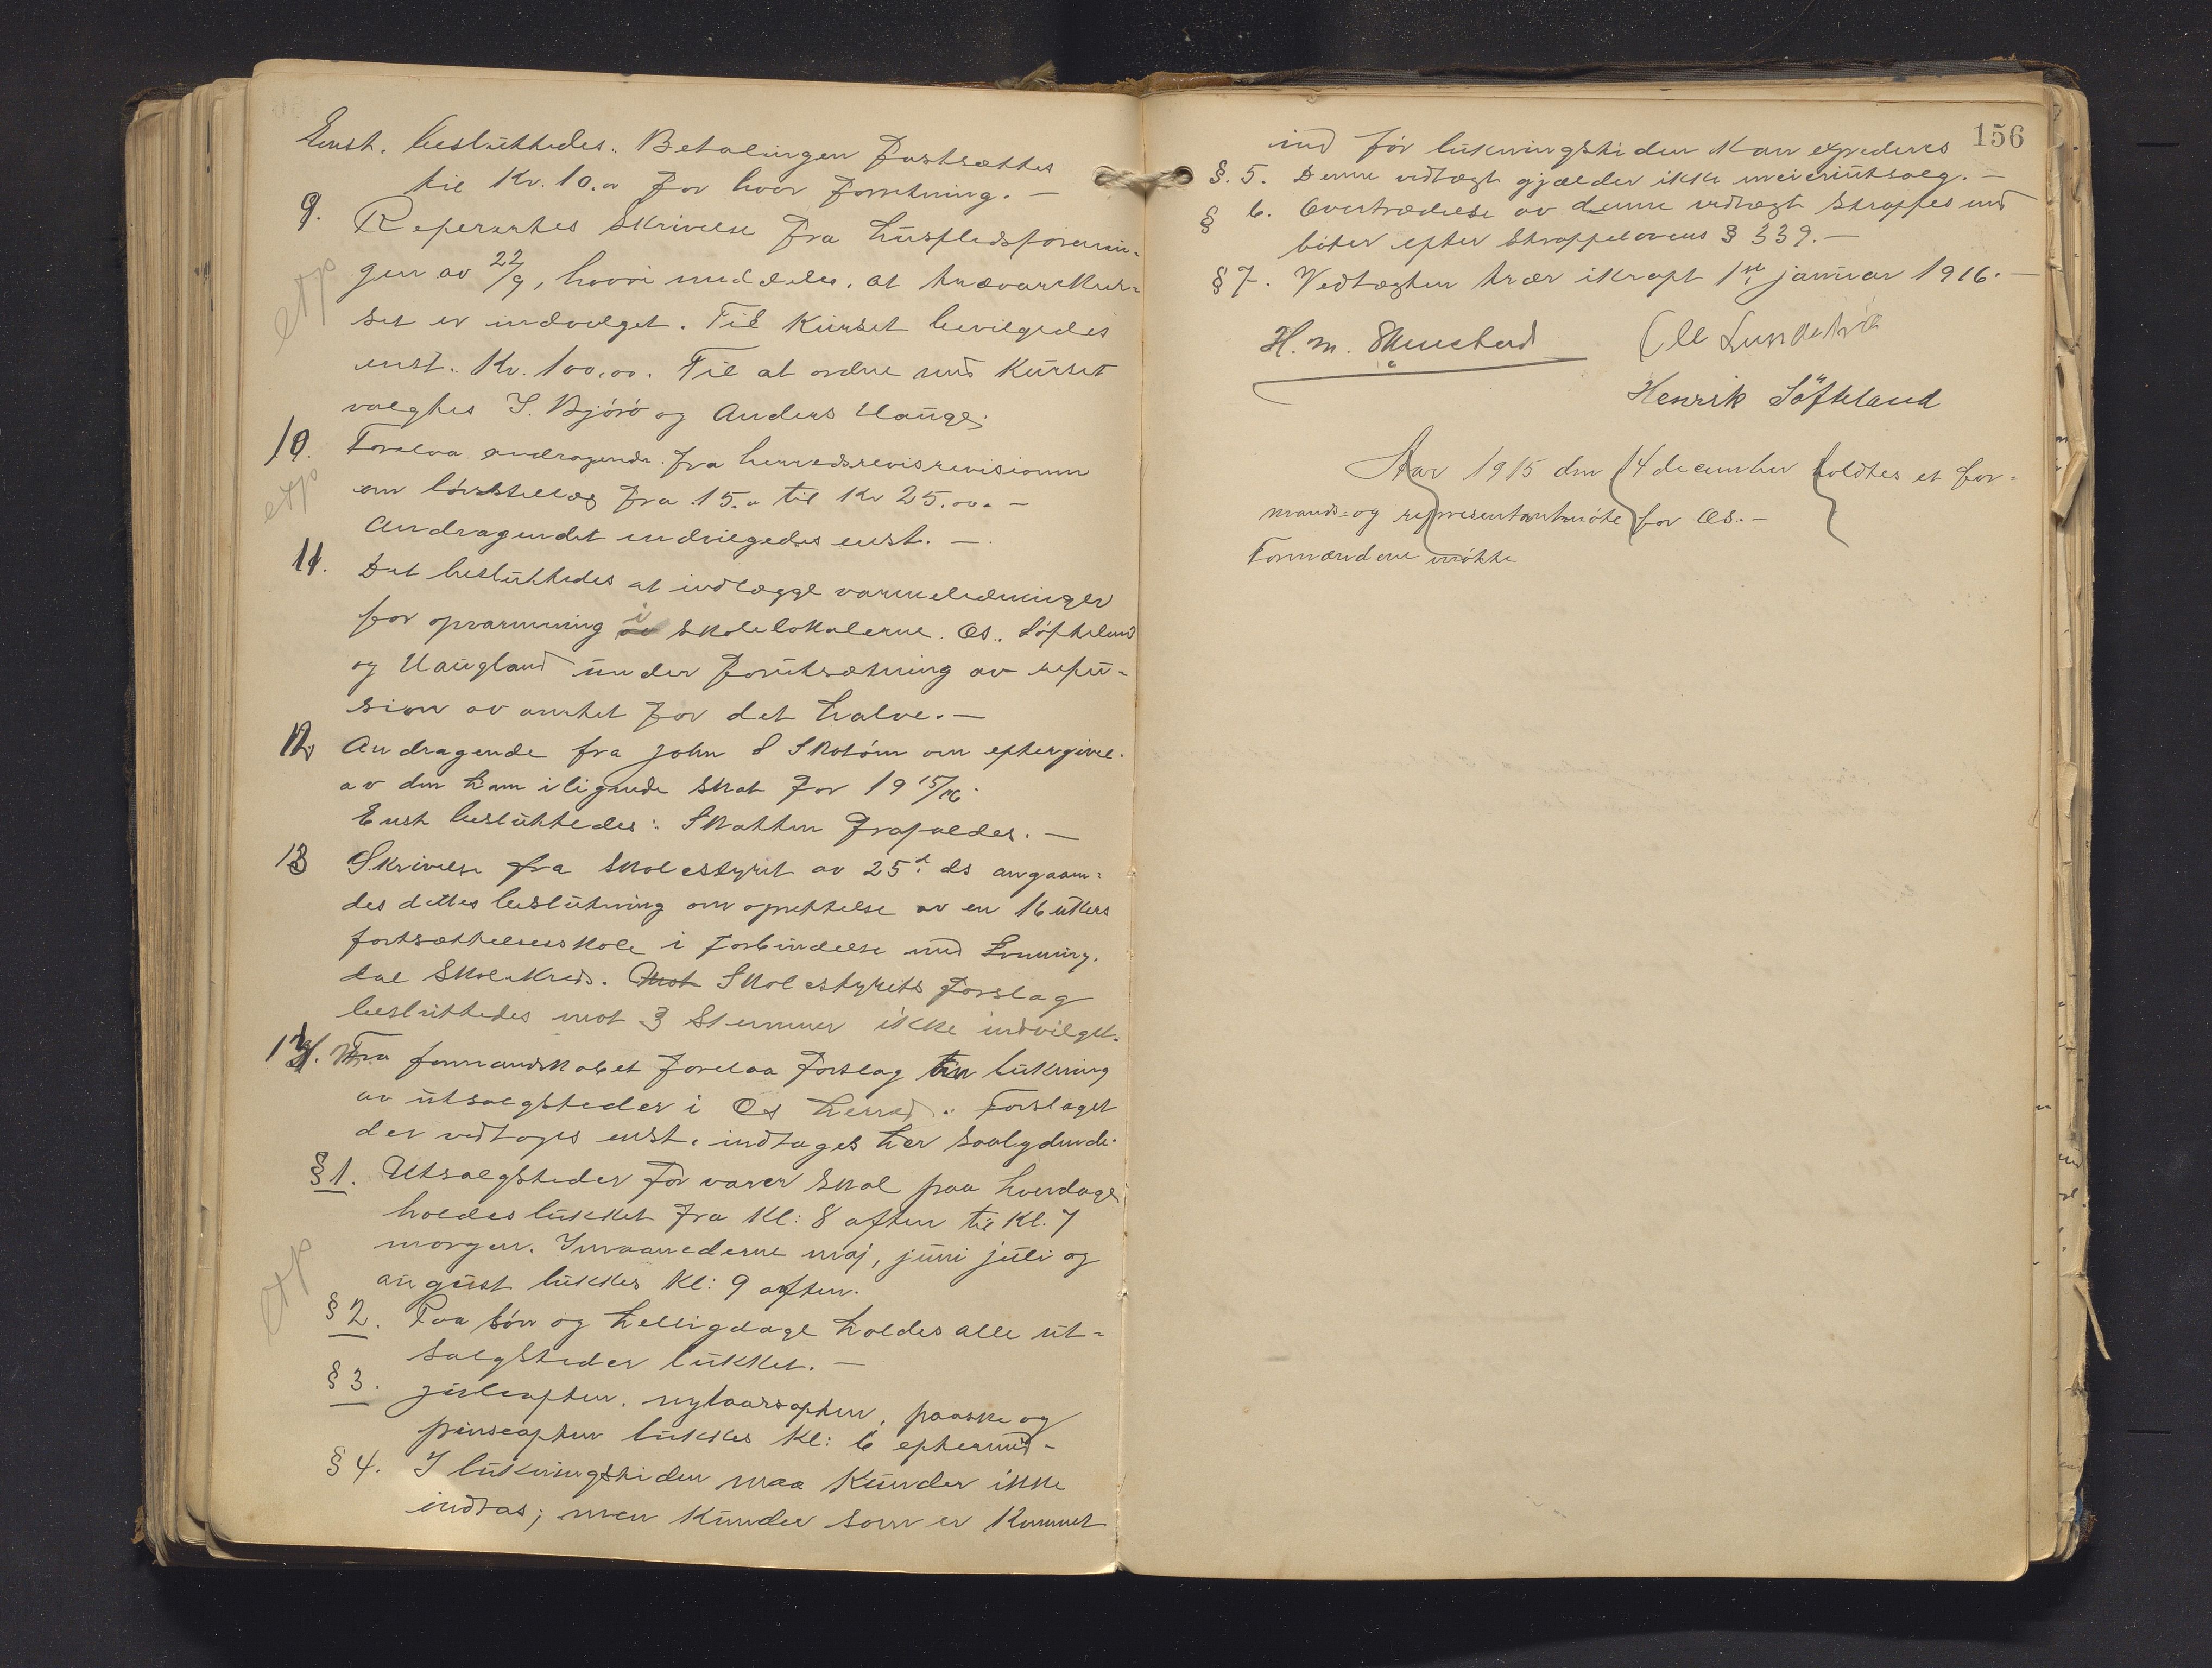 Enst. besluttedes: Betalingen fastsættes
til Kr. 10.00 for hver forretning. —
9. Refererтes skrivelse fra husflidsforenin-
gen av 22/9, hvori meddeles, at trævarekur-
set er indvilget. Til kurset bevilgedes
enst. Kr. 100.00. Til at ordne med kurset
valgtes I. Bjørø og Anders Hauge.
etp
10. Forelaa andragende fra herredsrevisrevisionen
om lønstillæg fra 15.00 til Kr 25.00. —
Andragendet indvilgedes enst. —
etp
11. Det besluttedes at indlægge varmeledninger
for opvarmning i skolelokalerne. Os, Søfteland
og Haugland under forutsætning av refu-
sion av amtet for det halve. —
12. Andragende fra John S Skotøm om eftergivel.
av den ham iligende skat for 1915/16.
Enst besluttedes: Skatten frafaldes. —
13 Skrivelse fra skolestyret av 25d. ds angaaen-
des dettes beslutning om oprettelse av en 16 ukers
fortsættelsesskole i forbindelse med Lønning-
dal skolekreds. Skolestyrets forslag
besluttedes mot 3 stemmer ikke indvilget.
14. Fra formandskabet forelaa forslag til lukning
av utsalgsteder i Os herred. Forslaget
der vedtoges enst. indtages her saalydende.
§ 1. Utsalgsteder for varer skal paa hverdage
holdes lukket fra Kl: 8 aften til Kl. 7
morgen. I maanederne maj, juni juli og
august lukkes Kl: 9 aften.
etp
§ 2. Paa søn og helligdage holdes alle ut-
salgsteder lukket. —
§ 3. Juleaften, nytaarsaften, paaske og
pinseaften lukkes Kl: 6 eftermid-
§ 4. I lukningstiden maa kunder ikke
indtas; men kunder som er kommet
156
ind før lukningstiden kan expederes
§. 5. Denne vedtægt gjælder ikke meieriutsalg. —
§ 6. Overtrædelse av denne vedtægt straffes med
bøter efter straffelovens § 339. —
§ 7. Vedtægten trær ikraft 1ste januar 1916. —
H. M. Skuestad
Ole Lunde
Henrik Söfteland
Aar 1915 den 14 december holdtes et for-
mands- og representantmøte for Os. —
Formændene møtte